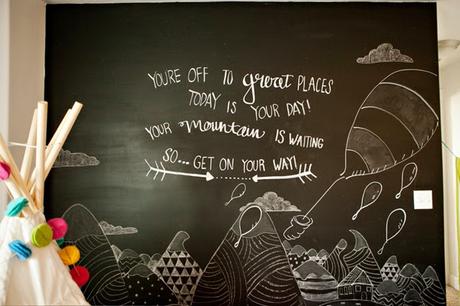 YOU'RE OFF TO great PLACES
TODAY IS YOUR DAY!
YOUR Mountain IS WAITING
SO... GET ON YOUR WAY!